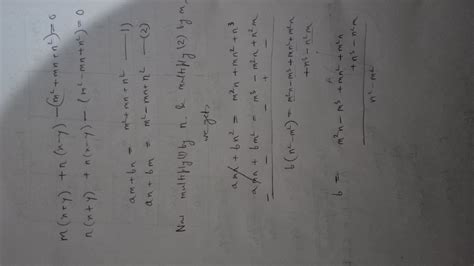 m(x+y) + n(x-y) - (m²+mn+n²) = 0
n(x+y) + n(x-y) - (m²-mn+n²) = 0
am + bn = m²+mn+n² —— (1)
an + bm = m²-mn+n² —— (2)
Now multiply (1) by n & multiply (2) by m,
we get,
amn + bn² = m²n + mn² + n³
amn + bm² = m³ - m²n + n²m
- - - + -
b(n²-m²) = m²n - m³ + mn² + m²n
+ n³ - n²m
b = m²n - m³ + mn² + m²n
+ n³ - n²m
n² - m²